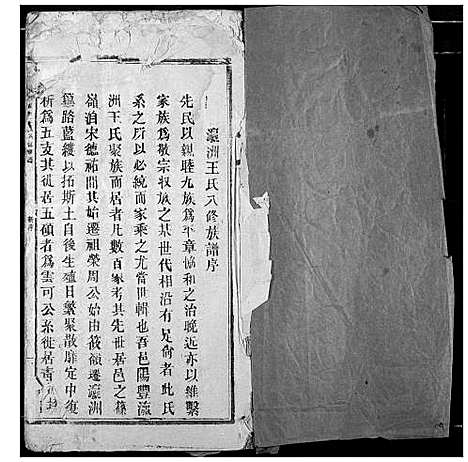 瀛洲王氏八修族譜序
先民以親睦九族爲平章協和之治晚近亦以維繫
家族爲敬宗收族之基世代相沿有足尙者此氏
系之所以必統而家乘之尤當世輯也吾邑陽豐瀛
洲王氏聚族而居者凡數百家考其先世居邑之篠
嶺消宋德祐間其始遷祖榮周公始由篠嶺遷瀛洲
篳路藍縷以拓斯土自後生殖日繁聚散靡定中復
析爲五支其徙居五碩者爲雲可公系徙居